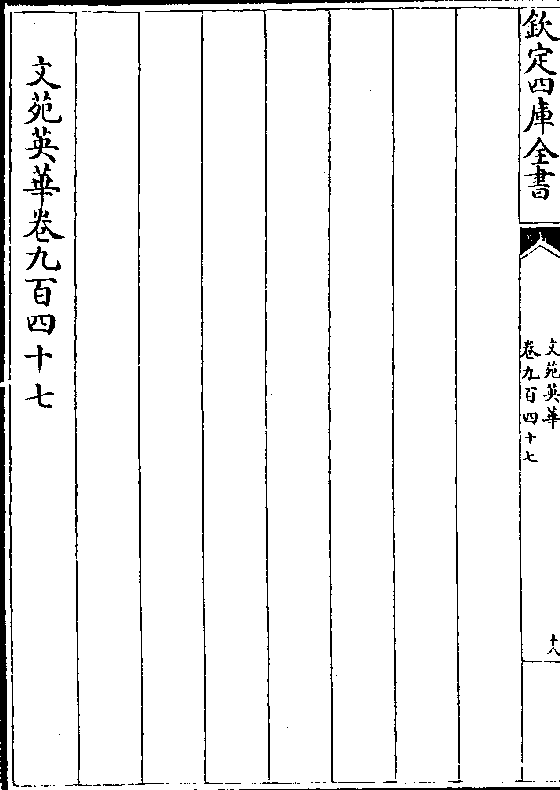 欽定四庫全書
文苑英華
卷九百四十七
十八
文苑英華卷九百四十七